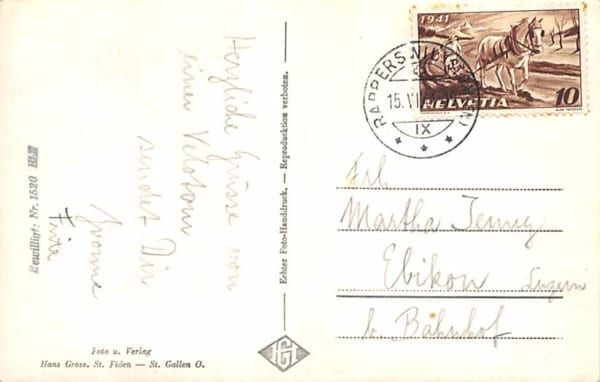 Herzliche Grüsse von
einer Velotour
sendet Dir
Yvonne
Bewilligt: Nr. 1520
Foto u. Verlag
Hans Gross, St. Fiden — St. Gallen O.
Echter Foto-Handdruck. — Reproduktion verboten.
HG
1941
HELVETIA
10
RAPPERSWIL
15. VII
IX
Frl.
Martha Jenny
Ebikon Luzern
b. Bahnhof